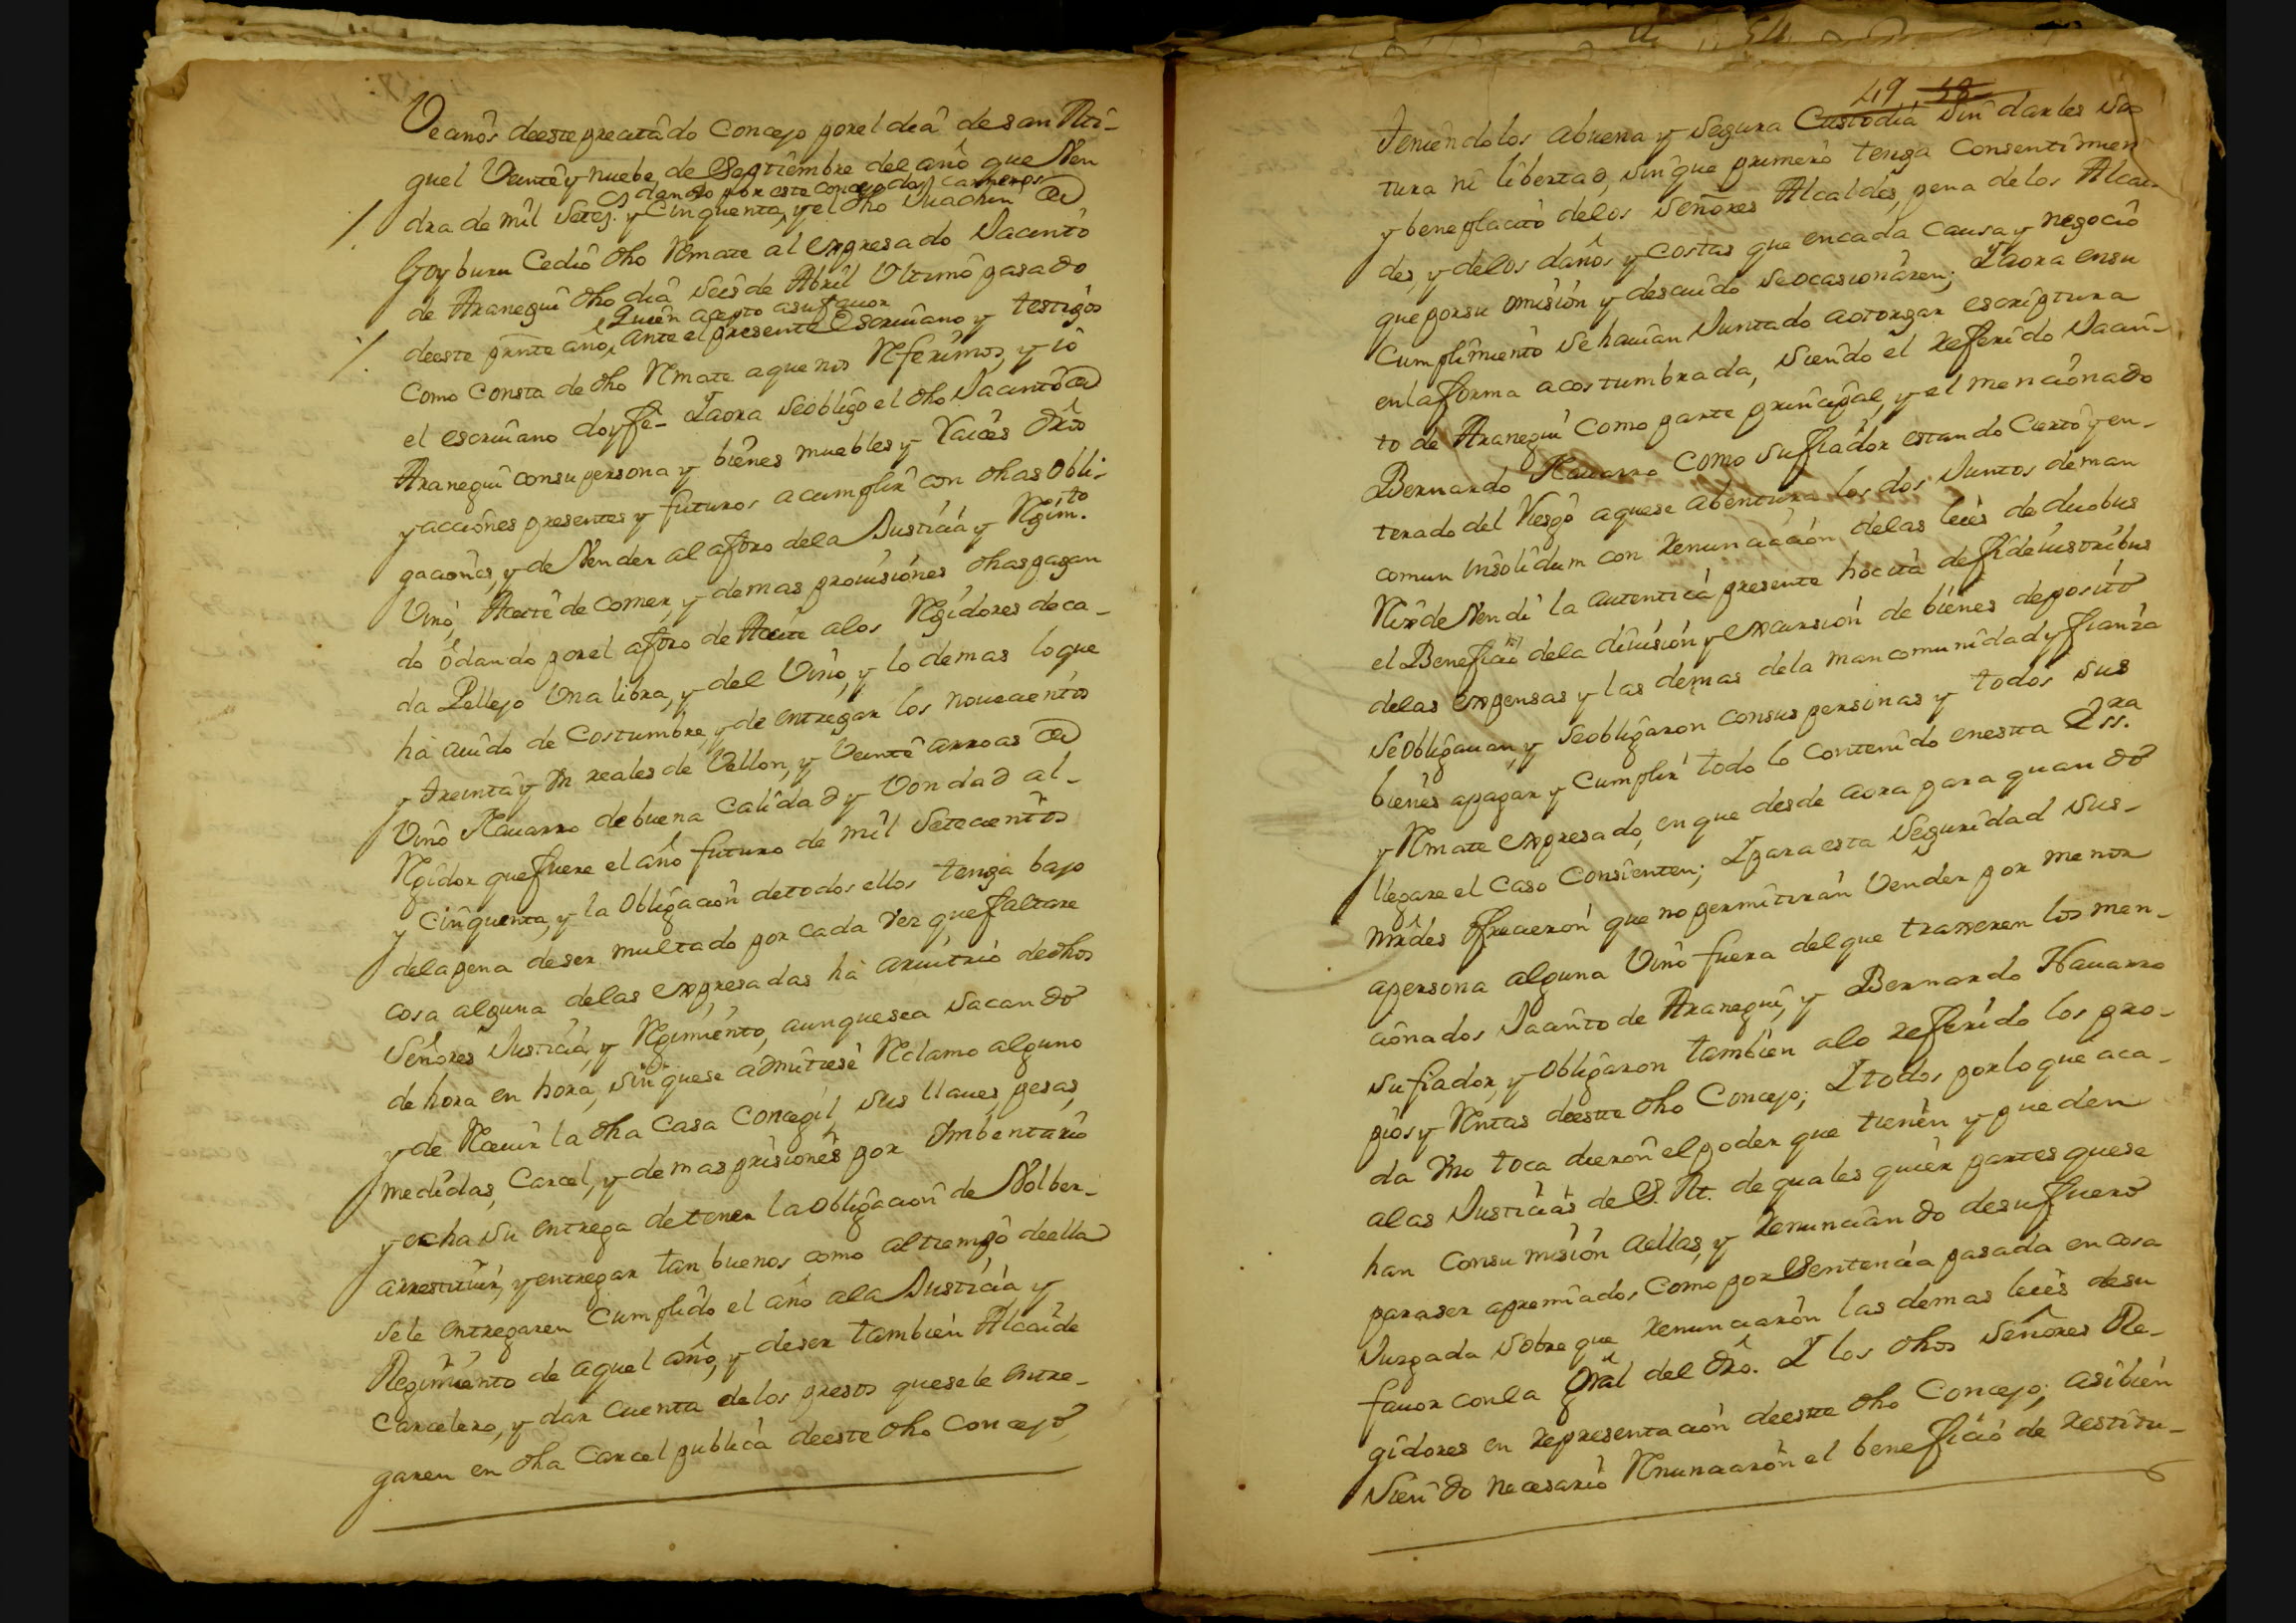 Vecanôs deeste precitado Concejo por el dia de san Mi-
guel Veinte y nuebe de Septiembre del año que Ven
dando por este concejo dos carneros
dra de mil Setez.s y Cinquenta, y el dho Juachin de
Goyburu Cedió dho Remate al expresado Jacinto
de Aranegui dho dia seis de Abril Vltimo pasado
Quien acepto a su fauor
deeste presnte año, ante el presente Escriuano y testigos
Como consta de dho Remate a que nos Referimos, y io
el escriuano doy fè- Y aora se obligo el dho Jacinto de
Aranegui con su persona y bienes muebles y Raices dros
y acciones presentes y futuros a cumplir con dhas obli-
gaciones, y de Vender al aforo dela Justicia y Regim.to
Vino, Aceite de comer, y demas prouisiones dhas pagan
do ò dando por el aforo de Aceite alos Regidores de ca-
da Pellejo Vna libra, y del Vino, y lo demas lo que
hà auido de Costumbre, y de entregar los nouecientos
y treinta y Vn reales de Vellon, y Veinte arroas de
Vino Nauarro de buena Calidad y Vondad al-
Regidor que fuere el año futuro de mil Setecientos
y Cinquenta, y la Obligacion detodos ellos tenga bajo
dela pena deser multado por cada vez que faltare
cosa alguna delas expresadas hà aruitrio dedhos
Señores Justicia, y Regimiento, aunque sea sacando
de hora en hora, sin que se admitiese Reclamo alguno
y de Reciuir la dha Casa Concegil, sus llaues, pesas,
medidas, Carcel, y demas prisiones por Imbentario
y echa su entrega de tener la obligacion de Volber-
arrestituir, y entregar tan buenos como al tiempo deella
sele entregaren Cumplido el año ala Justicia y
Regimiento de aquel año, y deser tambien Alcaide
Carcelero, y dar Cuenta delos presos que se le entre-
garen en dha Carcel publica deeste dho Concejo,
49 58
Teniendolos abuena y segura Custodia sin darles sol
tura ni libertad, sin que primero tenga Consentimien
y beneplacito delos Señores Alcaldes, pena delos Alcai-
des, y delos daños y costas que encada Causa y negocio
que por su omision y descuido se ocasionaren; Y aora en su
Cumplimiento se hauian Juntado a otorgar escriptura
en la forma acostumbrada, siendo el referido Jacin-
to de Aranegui Como parte principal, y el mencionado
Bernardo Nauarro Como su fiador estando Cierto y en-
terado del Riesgo a que se abentura los dos Juntos de man
comun insolidum con renunciacion delas leies de duobus
Rex de Vendi la autentica presente hoc ita de fideiusoribus
el Beneficio dela diuision y excursion de bienes deposito
delas expensas y las demas dela mancomunidad y fianza
se obligauan, y se obligaron con sus personas y todos sus
bienes apagar y Cumplir todo lo Contenido enestta Ess.ra
y Remate expresado, en que desde aora para quando
llegare el Caso Consienten; Y para esta Seguridad sus-
mrzdes ofrecieron que no permitiran Vender por menor
apersona alguna Vino fuera del que traxeren los men-
cionados Jacinto de Aranegui, y Bernardo Nauarro
su fiador, y obligaron tambien alo referido los pro-
pios y Rentas deestte dho Concejo; Y todos por lo que aca-
da Vno toca dieron el poder que tienen y pueden
alas Justicias de S. M. de quales quier partes que se
han Consumision aellas, y renunciando de su fuero
para ser apremiados Como por Sentencia pasada en cosa
Juzgada sobre que renunciaron las demas leies desu
fauor con la Gral del dro. Y los dhos Señores Re-
gidores en representacion deestte dho Concejo; asibien
siendo necesario Renunciaron el beneficio de restitu-